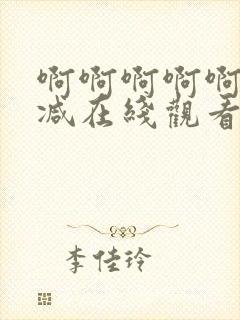 啊啊啊啊啊
减在綫觀看
李佳玲